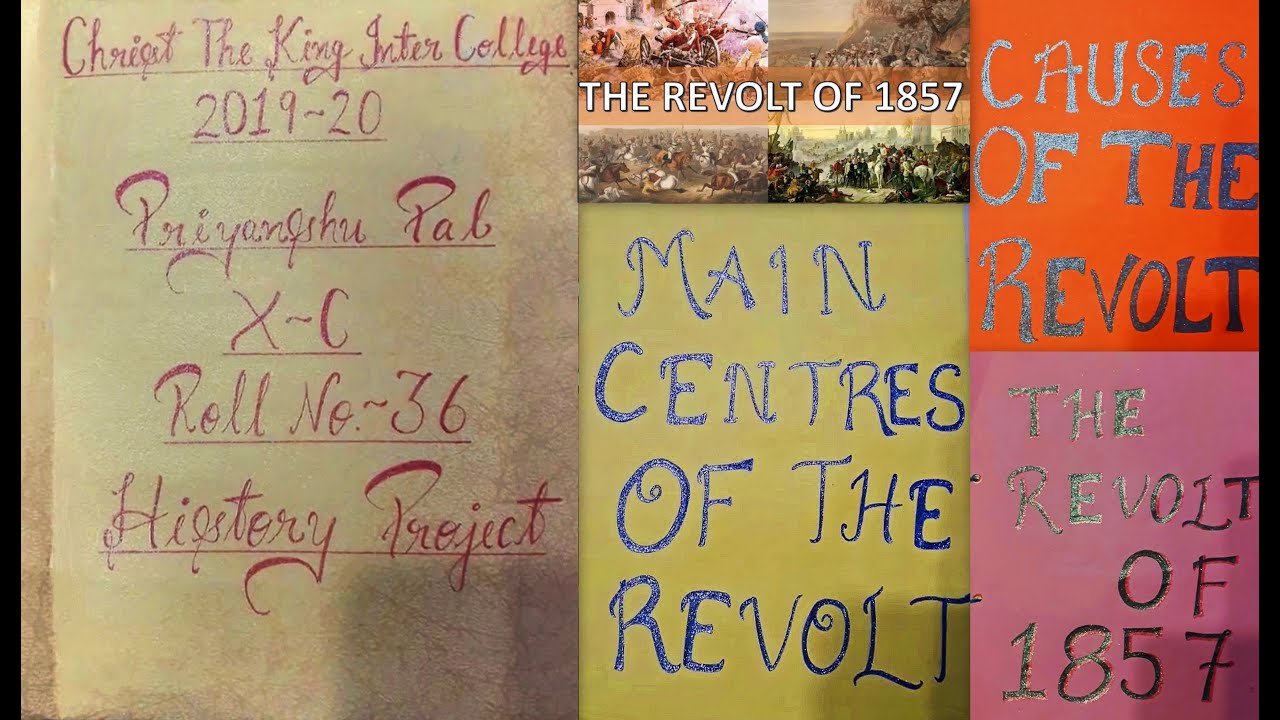 Christ The King Inter College
2019~20
Priyangshu Pal
X~C
Roll No.~36
History Project
THE REVOLT OF 1857
MAIN
CENTRES
OF THE
REVOLT
CAUSES
OF THE
REVOLT
THE
REVOLT
OF
1857